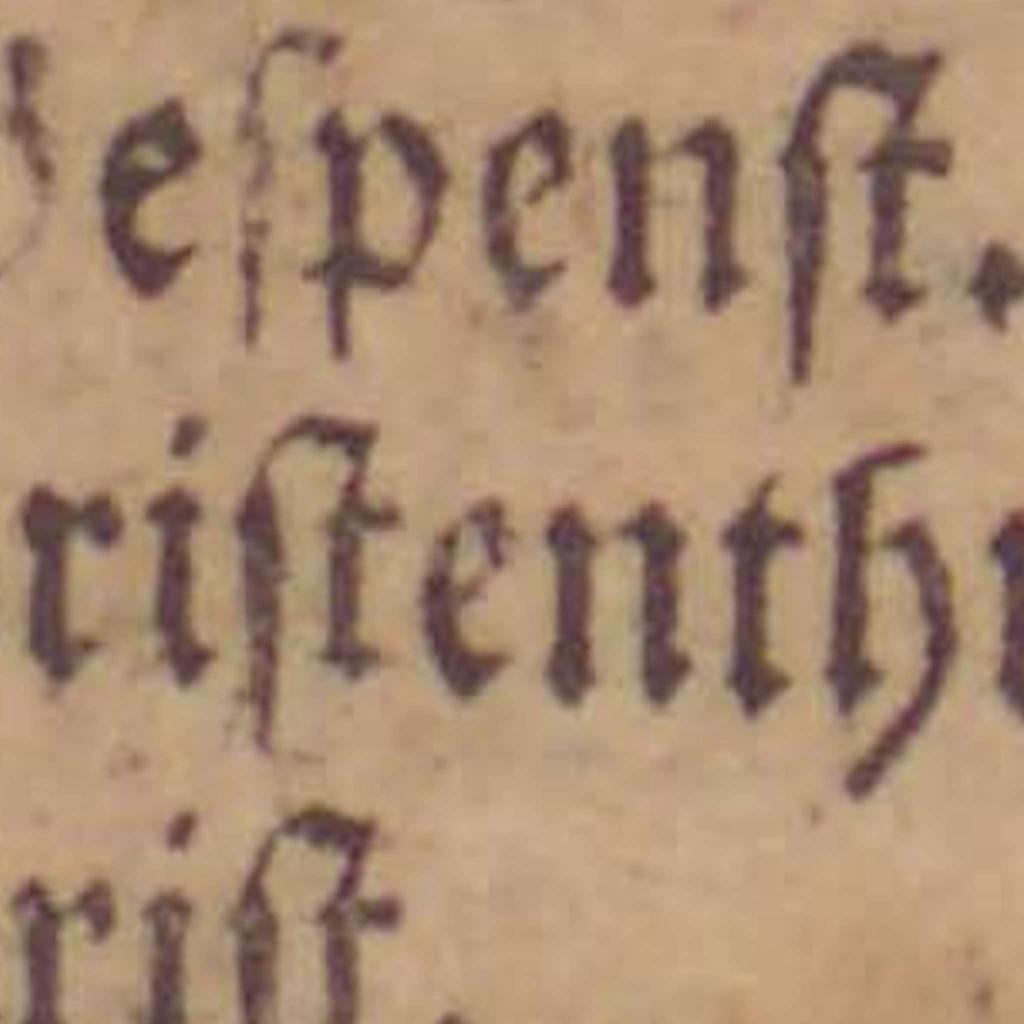 eſpenſt.
riſtenth
riſt